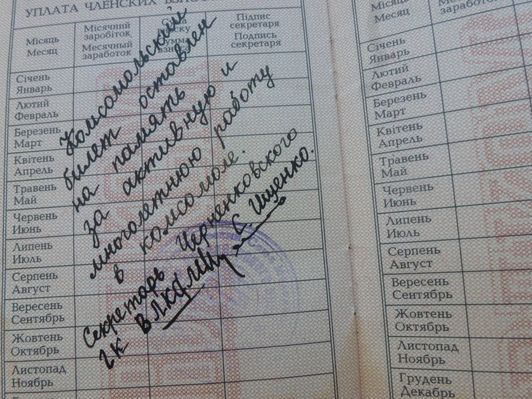 УПЛАТА ЧЛЕНСКИХ
Місяць
Месяц
Місячний
заробіток
Месячный
заработок
Підпис
секретаря
Подпись
секретаря
Січень
Январь
Лютий
Февраль
Березень
Март
Квітень
Апрель
Травень
Май
Червень
Июнь
Липень
Июль
Серпень
Август
Вересень
Сентябрь
Жовтень
Октябрь
Листопад
Ноябрь
Комсомольский
билет оставлен
на память
за активную и
многолетнюю работу
в комсомоле.
Секретарь
ГК ВЛКСМ С Ищенко.
Місяць
Месяц
Місячний
заробіток
Месячный
заработок
Січень
Январь
Лютий
Февраль
Березень
Март
Квітень
Апрель
Травень
Май
Червень
Июнь
Липень
Июль
Серпень
Август
Вересень
Сентябрь
Жовтень
Октябрь
Листопад
Ноябрь
Грудень
Декабрь